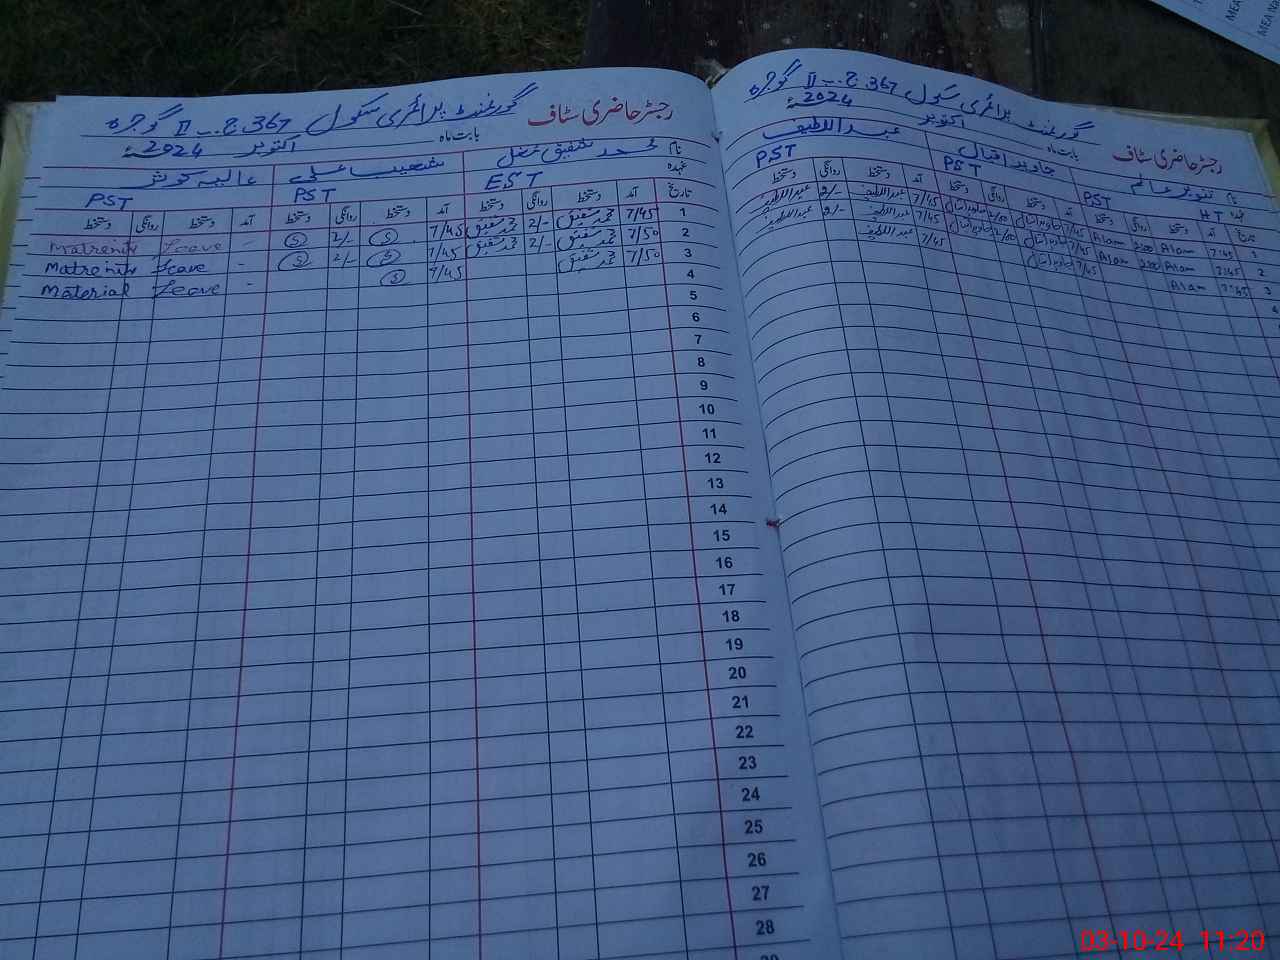 رجسٹر حاضری سٹاف گورنمنٹ پرائمری سکول 367 ج۔ب II گوجرہ
بابت ماہ اکتوبر 2024ء
نام تنویر عالم جاوید اقبال عبداللطیف
عہدہ HT PST PST PST
تاریخ آمد دستخط روانگی دستخط آمد دستخط روانگی دستخط آمد دستخط روانگی دستخط
1 7:45 Alam 2:00 Alam 7/45 جاوید اقبال 2/00 جاوید اقبال 7/45 عبداللطیف 2/- عبداللطیف
2 7:45 Alam 2:00 Alam 7/45 جاوید اقبال 2/00 جاوید اقبال 7/45 عبداللطیف 2/- عبداللطیف
3 7:45 Alam 7/45 جاوید اقبال 7/45 عبداللطیف
4
رجسٹر حاضری سٹاف گورنمنٹ پرائمری سکول 367 ج۔ب II گوجرہ
بابت ماہ اکتوبر 2024ء
نام محمد شفیق شعیب علی عالیہ کوثر
عہدہ EST PST PST
تاریخ آمد دستخط روانگی دستخط آمد دستخط روانگی دستخط آمد دستخط روانگی دستخط
1 7/45 محمد شفیق 2/- محمد شفیق 7/45 S 2/- S - Leave Matrenity
2 7/50 محمد شفیق 2/- محمد شفیق 7/45 S 2/- S - Leave Matrenity
3 7/50 محمد شفیق 7/45 S - Leave Material
4
5
6
7
8
9
10
11
12
13
14
15
16
17
18
19
20
21
22
23
24
25
26
27
28
MEA
MEA Na
03-10-24 11:20